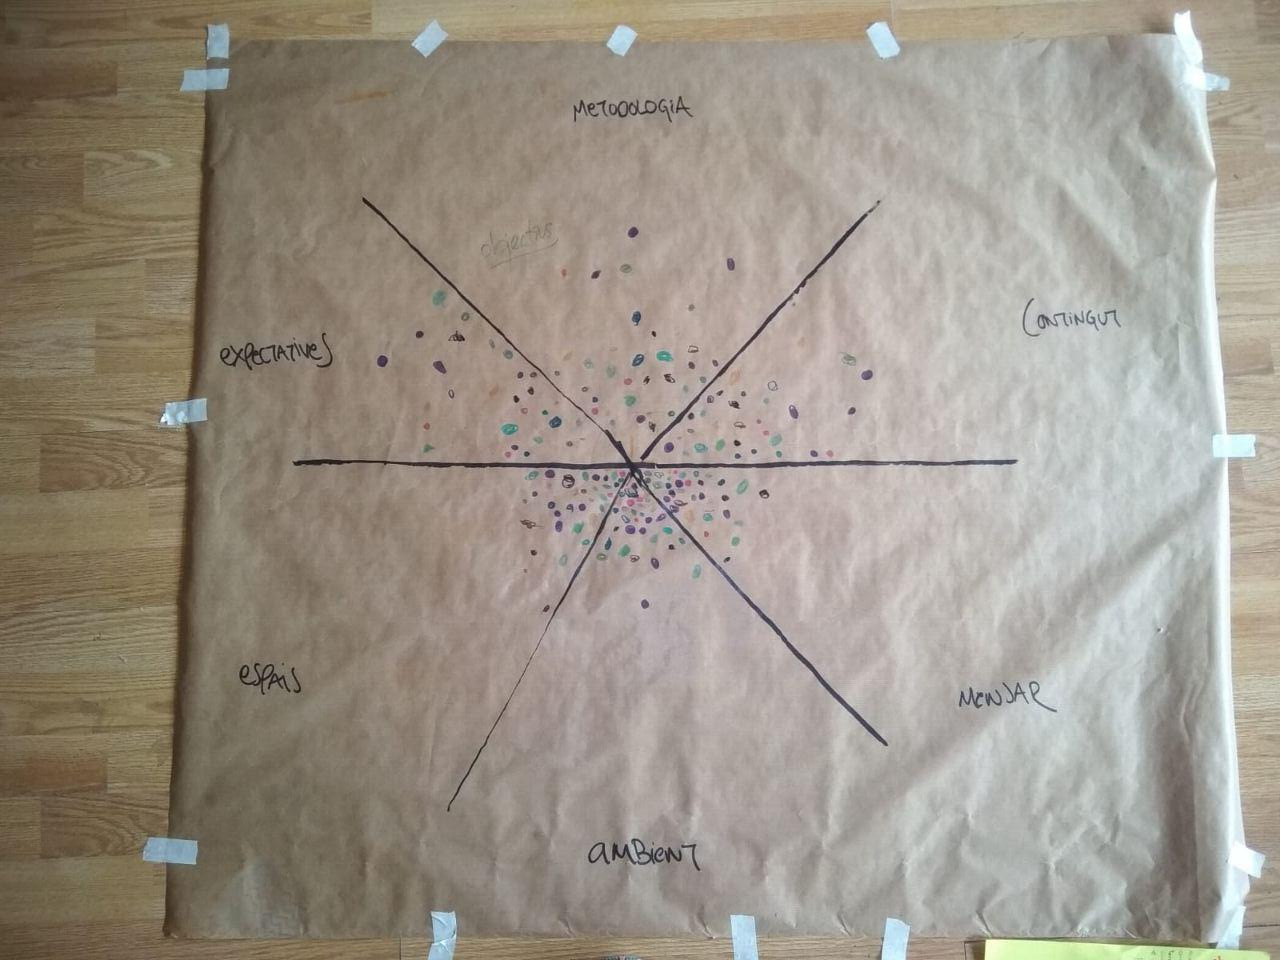 METODOLOGIA
objectius
CONTINGUT
EXPECTATIVES
ESPAIS
MENJAR
AMBIENT